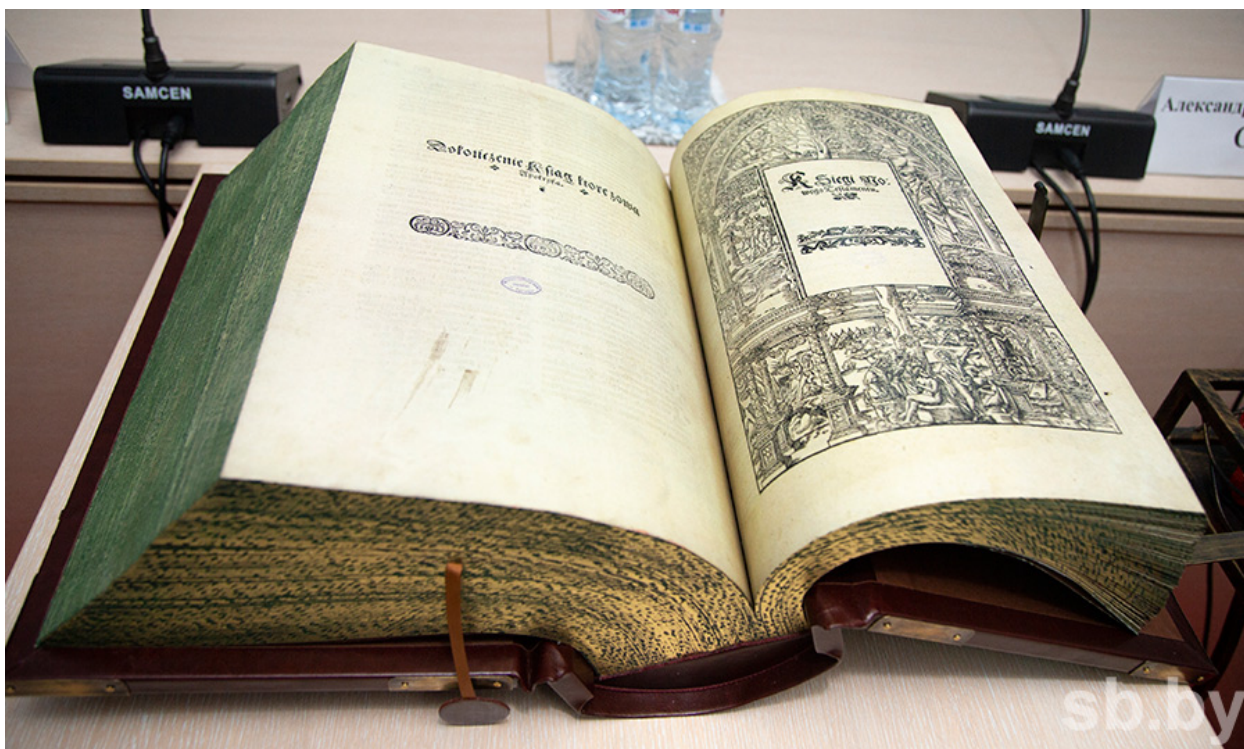 SAMCEN
SAMCEN
Александр
С
Dokończenie Ksiąg ktore zową
Apokrypha.
KSięgi No:
wego Testamentu.
sb.by